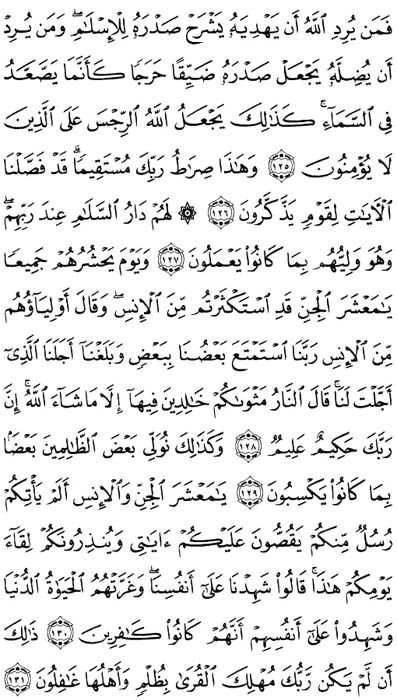 فَمَن يُرِدِ ٱللَّهُ أَن يَهۡدِيَهُۥ يَشۡرَحۡ صَدۡرَهُۥ لِلۡإِسۡلَٰمِۖ وَمَن يُرِدۡ
أَن يُضِلَّهُۥ يَجۡعَلۡ صَدۡرَهُۥ ضَيِّقًا حَرَجٗا كَأَنَّمَا يَصَّعَّدُ
فِي ٱلسَّمَآءِۚ كَذَٰلِكَ يَجۡعَلُ ٱللَّهُ ٱلرِّجۡسَ عَلَى ٱلَّذِينَ
لَا يُؤۡمِنُونَ ١٢٥ وَهَٰذَا صِرَٰطُ رَبِّكَ مُسۡتَقِيمٗاۗ قَدۡ فَصَّلۡنَا
ٱلۡأٓيَٰتِ لِقَوۡمٖ يَذَّكَّرُونَ ١٢٦ ۞ لَهُمۡ دَارُ ٱلسَّلَٰمِ عِندَ رَبِّهِمۡۖ
وَهُوَ وَلِيُّهُم بِمَا كَانُواْ يَعۡمَلُونَ ١٢٧ وَيَوۡمَ يَحۡشُرُهُمۡ جَمِيعٗا
يَٰمَعۡشَرَ ٱلۡجِنِّ قَدِ ٱسۡتَكۡثَرۡتُم مِّنَ ٱلۡإِنسِۖ وَقَالَ أَوۡلِيَآؤُهُم
مِّنَ ٱلۡإِنسِ رَبَّنَا ٱسۡتَمۡتَعَ بَعۡضُنَا بِبَعۡضٖ وَبَلَغۡنَآ أَجَلَنَا ٱلَّذِيٓ
أَجَّلۡتَ لَنَاۚ قَالَ ٱلنَّارُ مَثۡوَىٰكُمۡ خَٰلِدِينَ فِيهَآ إِلَّا مَا شَآءَ ٱللَّهُۗ إِنَّ
رَبَّكَ حَكِيمٌ عَلِيمٞ ١٢٨ وَكَذَٰلِكَ نُوَلِّي بَعۡضَ ٱلظَّٰلِمِينَ بَعۡضَۢا
بِمَا كَانُواْ يَكۡسِبُونَ ١٢٩ يَٰمَعۡشَرَ ٱلۡجِنِّ وَٱلۡإِنسِ أَلَمۡ يَأۡتِكُمۡ
رُسُلٞ مِّنكُمۡ يَقُصُّونَ عَلَيۡكُمۡ ءَايَٰتِي وَيُنذِرُونَكُمۡ لِقَآءَ
يَوۡمِكُمۡ هَٰذَاۚ قَالُواْ شَهِدۡنَا عَلَىٰٓ أَنفُسِنَاۖ وَغَرَّتۡهُمُ ٱلۡحَيَوٰةُ ٱلدُّنۡيَا
وَشَهِدُواْ عَلَىٰٓ أَنفُسِهِمۡ أَنَّهُمۡ كَانُواْ كَٰفِرِينَ ١٣٠ ذَٰلِكَ
أَن لَّمۡ يَكُن رَّبُّكَ مُهۡلِكَ ٱلۡقُرَىٰ بِظُلۡمٖ وَأَهۡلُهَا غَٰفِلُونَ ١٣١